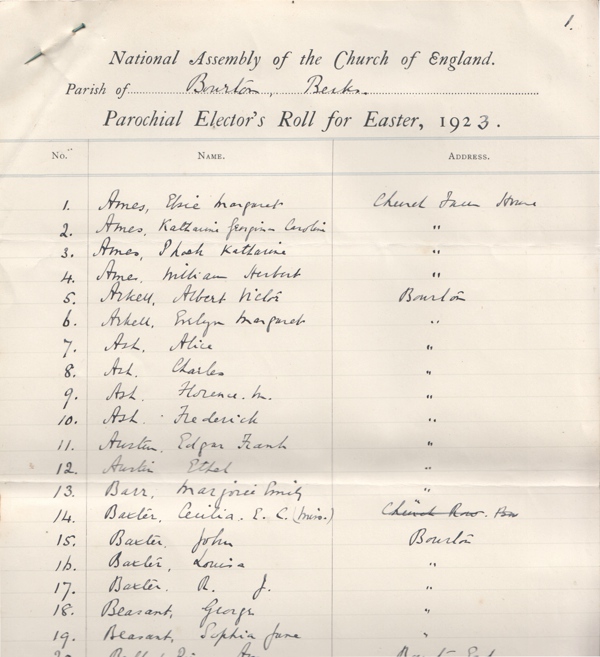 1.
National Assembly of the Church of England.
Parish of Bourton, Berks.
Parochial Elector's Roll for Easter, 1923.
No. NAME. ADDRESS.
1. Ames, Elsie Margaret Church Farm House
2. Ames, Katharine Georgina Caroline "
3. Ames, Phoebe Katharine "
4. Ames, William Herbert "
5. Arkell, Albert Victor Bourton
6. Arkell, Evelyn Margaret "
7. Ash, Alice "
8. Ash, Charles "
9. Ash, Florence. M. "
10. Ash, Frederick "
11. Austin, Edgar Frank "
12. Austin Ethel "
13. Barr, Marjorie Emily "
14. Baxter, Cecilia. E. C. (Miss.) Church Row.
15. Baxter, John Bourton
16. Baxter, Louisa "
17. Baxter. R. J. "
18. Beasant, George "
19. Beasant, Sophia Jane "